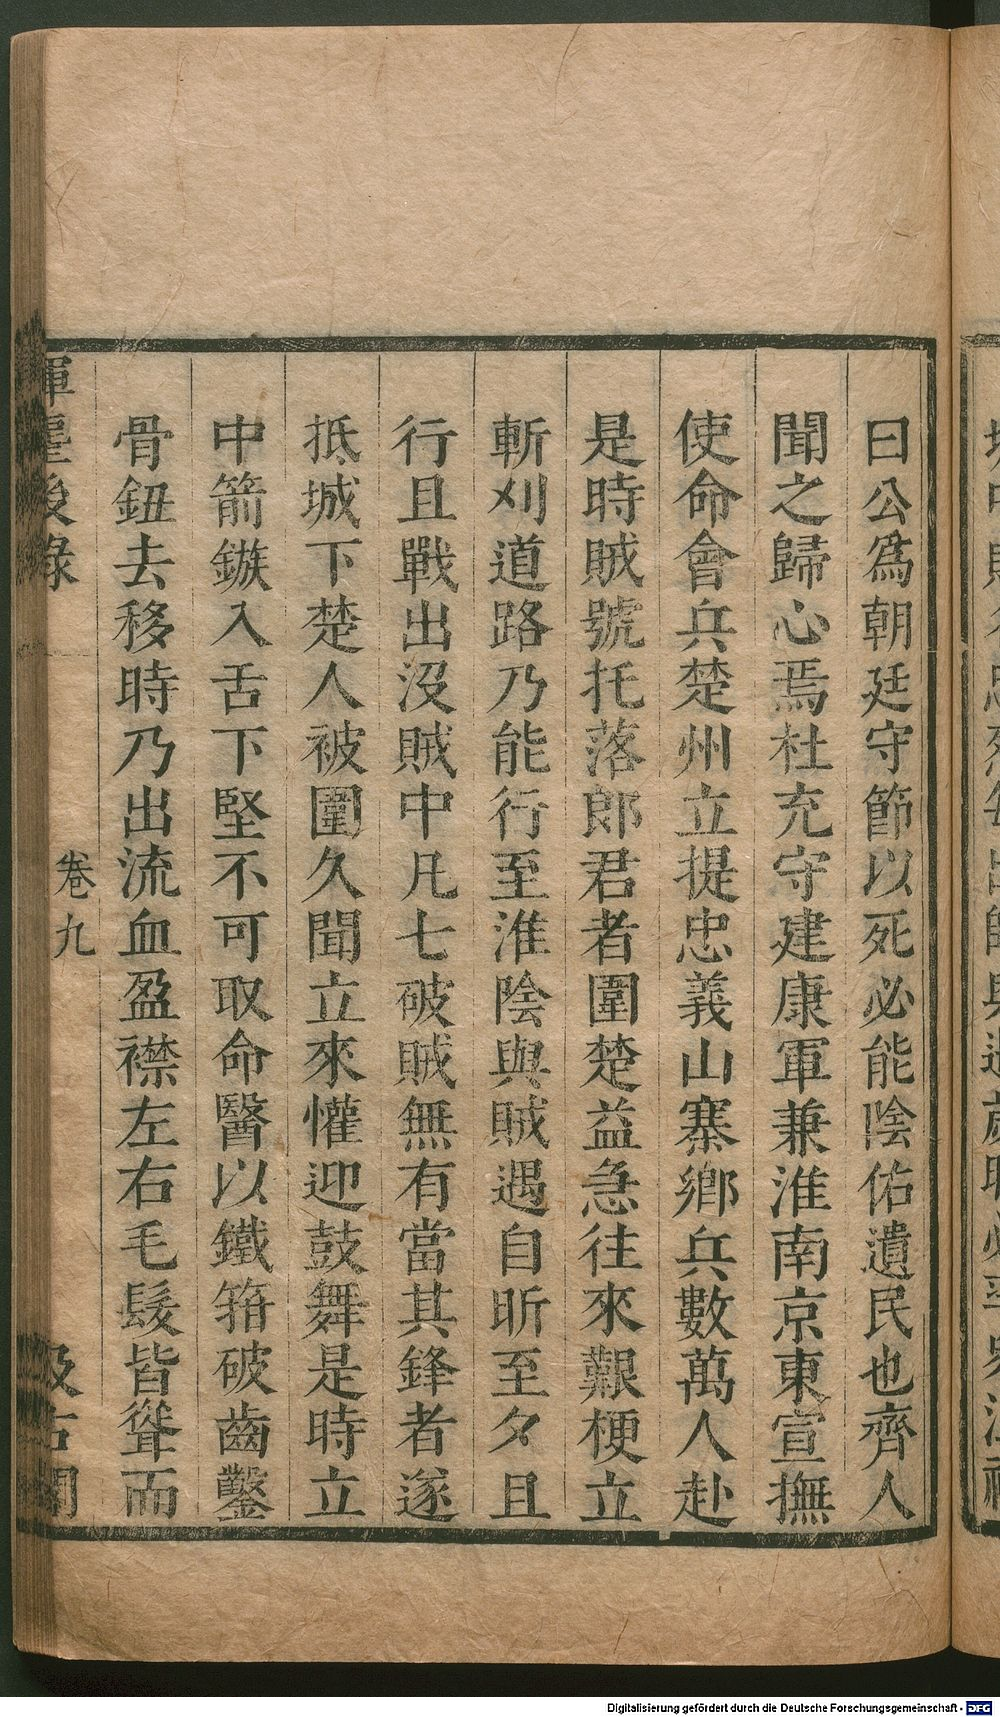 曰公爲朝廷守節以死必能陰佑遺民也齊人
聞之歸心焉杜充守建康軍兼淮南京東宣撫
使命會兵楚州立提忠義山寨鄉兵數萬人赴
是時賊號托落郎君者圍楚益急往來艱梗立
斬刈道路乃能行至淮陰與賊遇自昕至夕且
行且戰出沒賊中凡七破賊無有當其鋒者遂
抵城下楚人被圍久聞立來懽迎鼓舞是時立
中箭鏃入舌下堅不可取命醫以鐵箝破齒鑿
骨鈕去移時乃出流血盈襟左右毛髮皆聳而
揮麈後錄
卷九
汲古閣
Digitalisierung gefördert durch die Deutsche Forschungsgemeinschaft - DFG